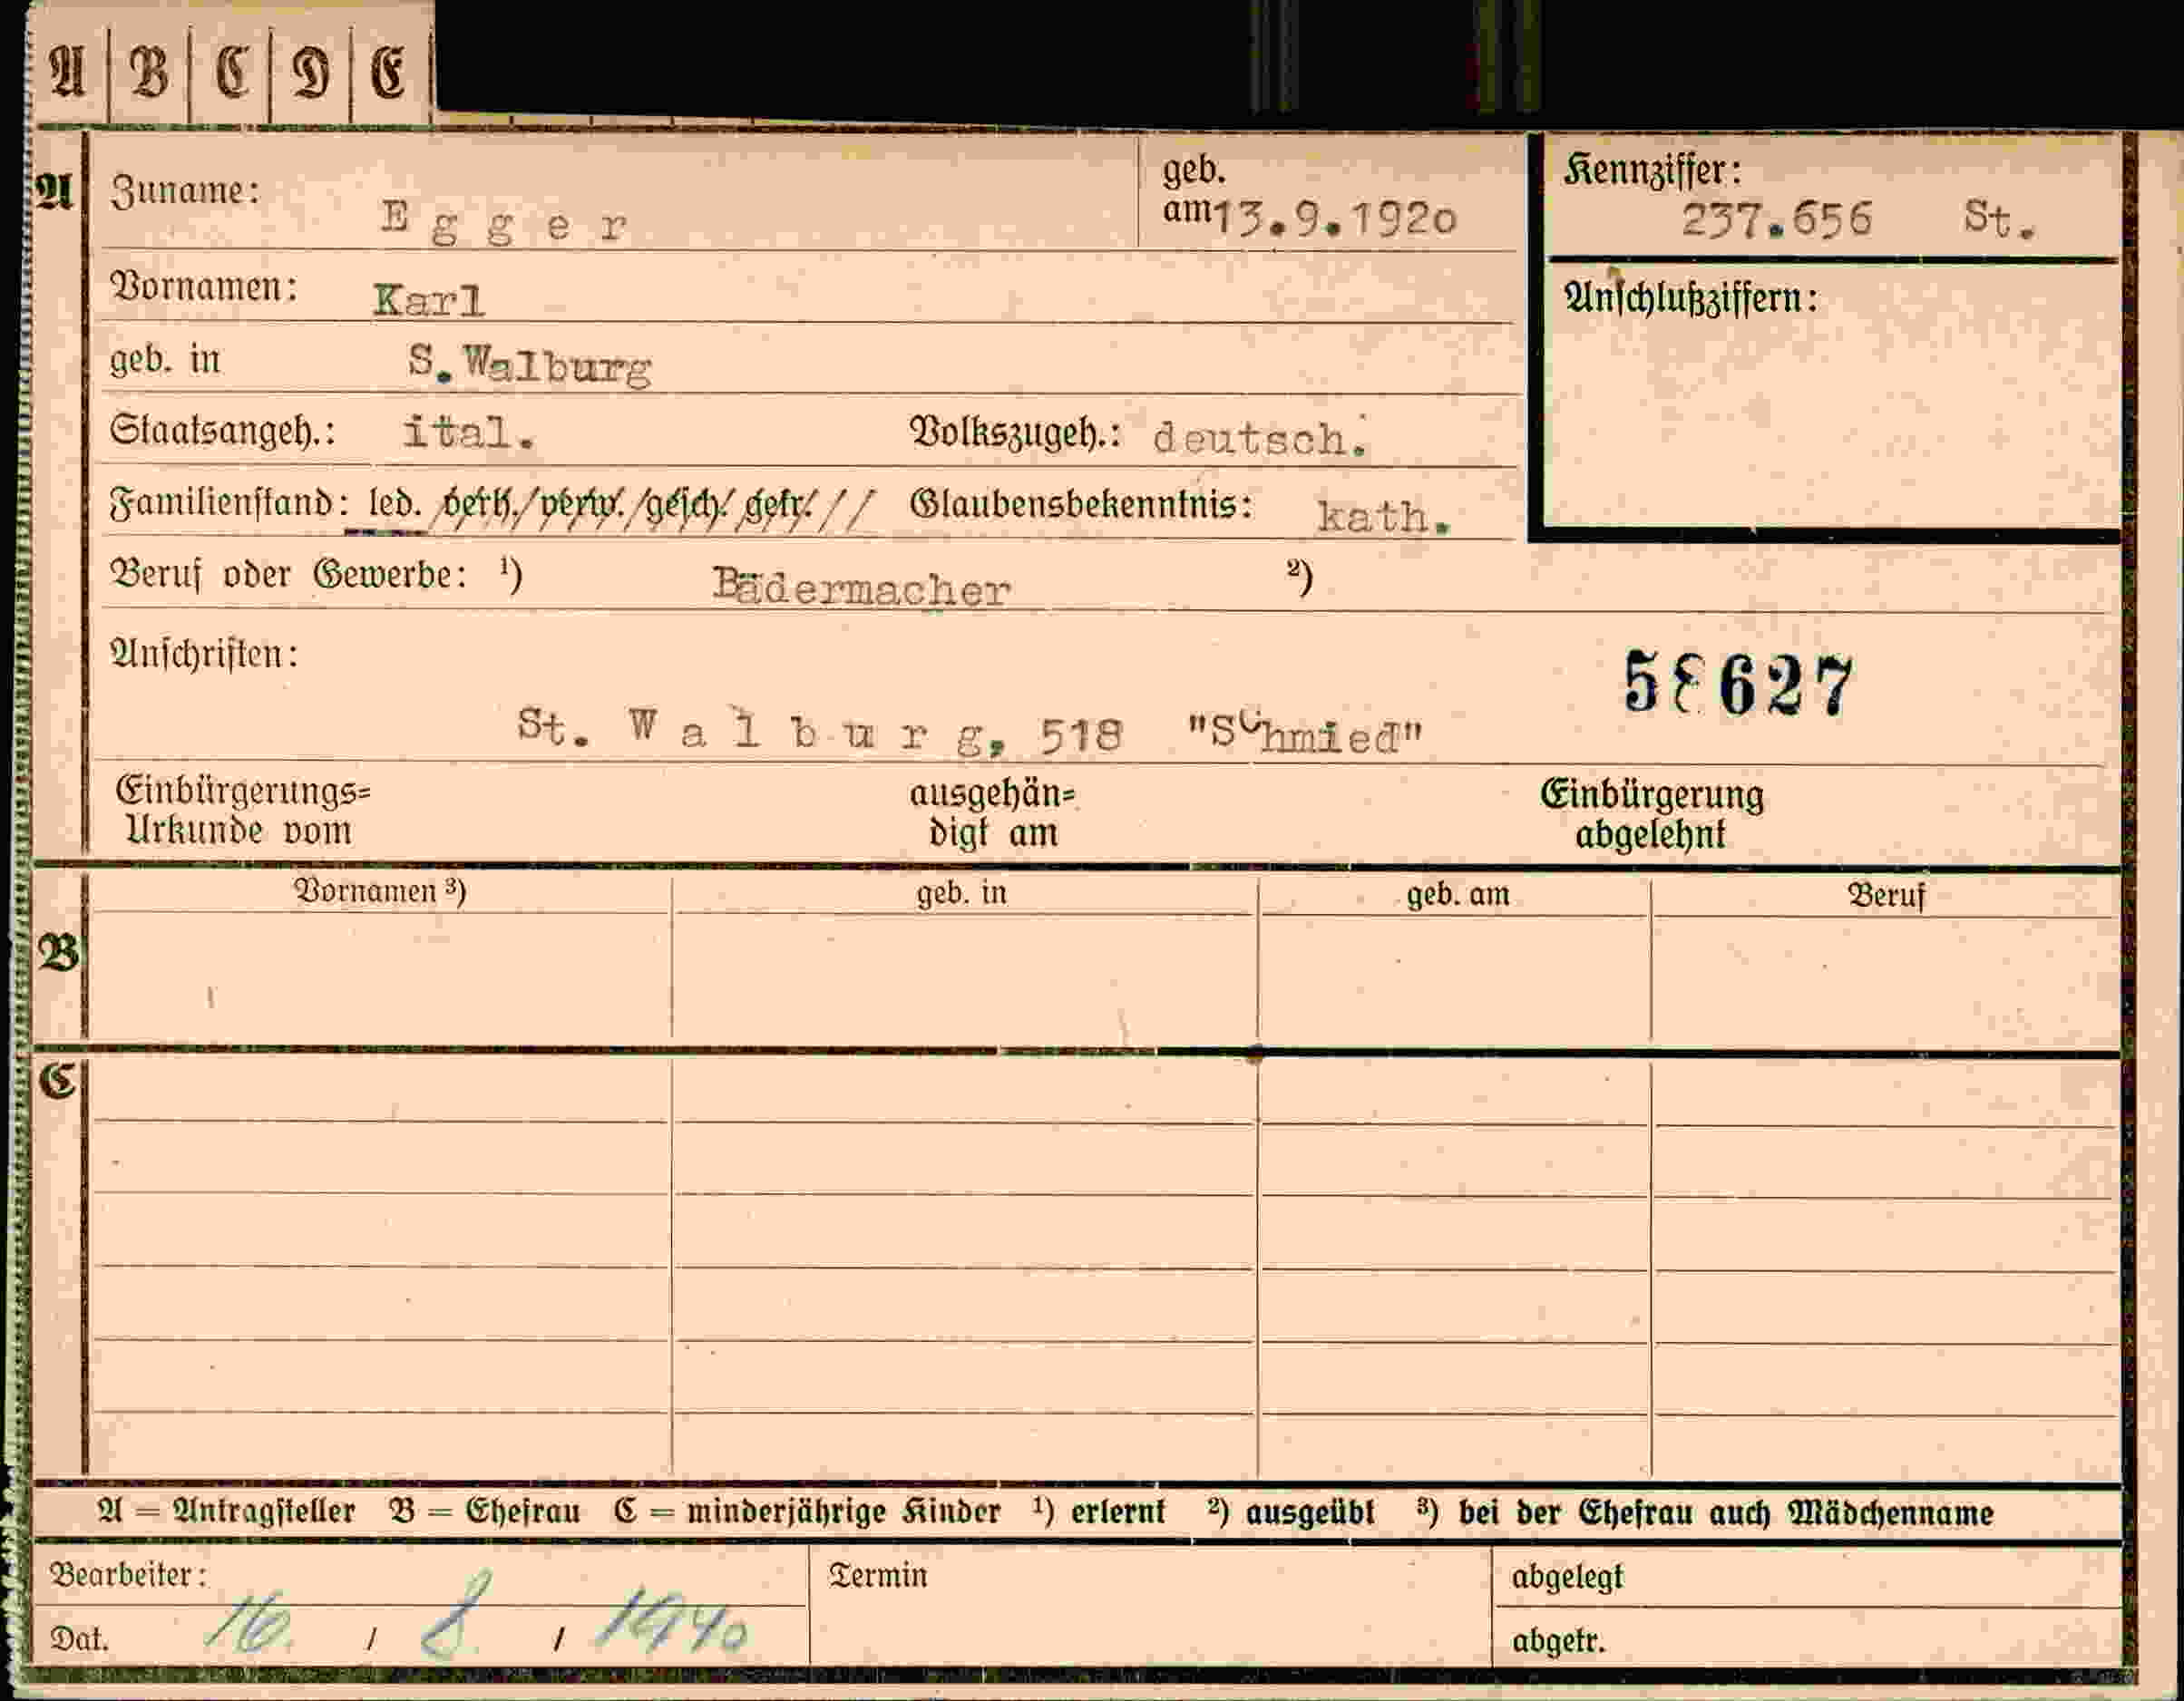 A B C D E
A Zuname: Egger geb. am 13.9.1920 Kennziffer: 237.656 St.
Vornamen: Karl Anschlußziffern:
geb. in S.Walburg
Staatsangeh.: ital. Volkszugeh.: deutsch.
Familienstand: led. verh. verw. gesch. getr. Glaubensbekenntnis: kath.
Beruf oder Gewerbe: ¹) Bädermacher ²)
Anschriften: 58627
St. Walburg, 518 "Schmied"
Einbürgerungs= ausgehän= Einbürgerung
Urkunde vom digt am abgelehnt
Vornamen ³) geb. in geb. am Beruf
B
C
A = Antragsteller B = Ehefrau C = minderjährige Kinder ¹) erlernt ²) ausgeübt ³) bei der Ehefrau auch Mädchenname
Bearbeiter: Termin abgelegt
Dat. 16. / 8 / 1940 abgetr.